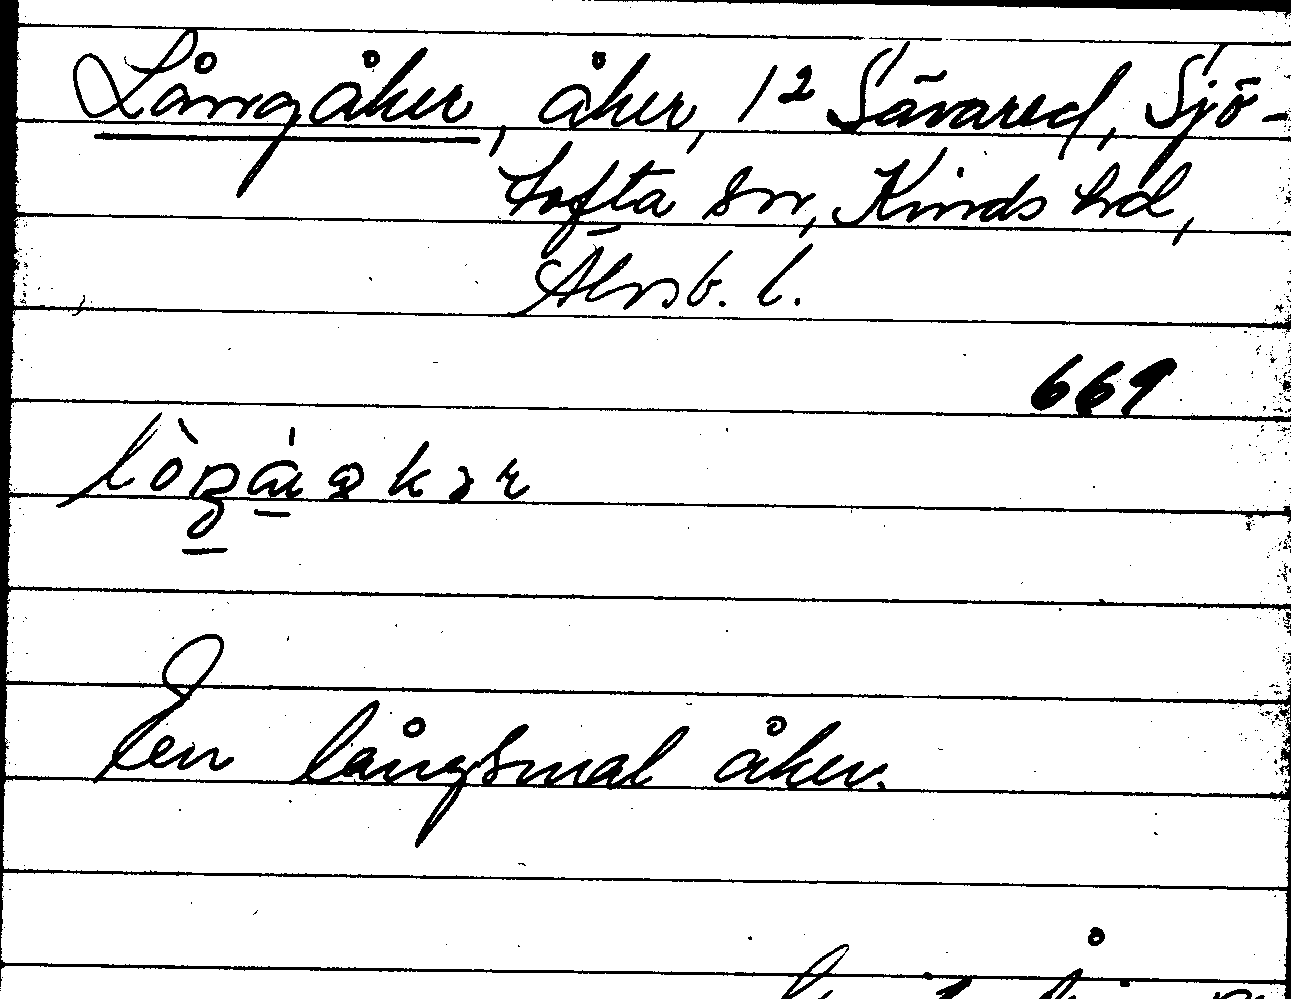 Långåker, åker, 1² Sävared, Sjö-
tofta sn, Kinds hd,
Älvsb. l.
669
En långsmal åker.